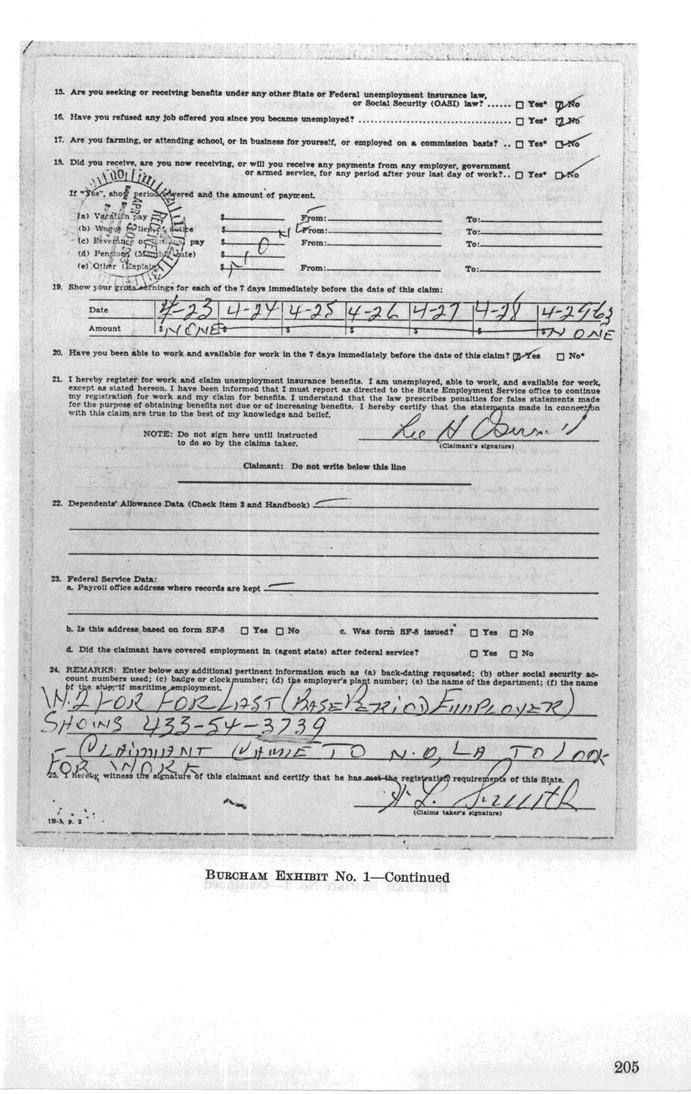 15. Are you seeking or receiving benefits under any other State or Federal unemployment insurance law,
or Social Security (OASI) law? ...... ☐ Yes* ☑ No
16. Have you refused any job offered you since you became unemployed? ........................................ ☐ Yes* ☑ No
17. Are you farming, or attending school, or in business for yourself, or employed on a commission basis? .. ☐ Yes* ☑ No
18. Did you receive, are you now receiving, or will you receive any payments from any employer, government
or armed service, for any period after your last day of work? .. ☐ Yes* ☑ No
If "Yes", show period covered and the amount of payment.
(a) Vacation pay $ From: To:
(b) Wages in lieu of notice $ From: To:
(c) Severance or pay $ From: To:
(d) Pension $
(e) Other (Explain) $ From: To:
19. Show your gross earnings for each of the 7 days immediately before the date of this claim:
Date 4-23 4-24 4-25 4-26 4-27 4-28 4-29 63
Amount $NONE $ $ $ $ $ $NONE
20. Have you been able to work and available for work in the 7 days immediately before the date of this claim? ☑ Yes ☐ No*
21. I hereby register for work and claim unemployment insurance benefits. I am unemployed, able to work, and available for work,
except as stated hereon. I have been informed that I must report as directed to the State Employment Service office to continue
my registration for work and my claim for benefits. I understand that the law prescribes penalties for false statements made
for the purpose of obtaining benefits not due or of increasing benefits. I hereby certify that the statements made in connection
with this claim are true to the best of my knowledge and belief.
Lee H Oswald
NOTE: Do not sign here until instructed
to do so by the claims taker.
(Claimant's signature)
Claimant: Do not write below this line
22. Dependents' Allowance Data (Check item 3 and Handbook)
23. Federal Service Data:
a. Payroll office address where records are kept
b. Is this address based on form SF-8 ☐ Yes ☐ No c. Was form SF-8 issued? ☐ Yes ☐ No
d. Did the claimant have covered employment in (agent state) after federal service? ☐ Yes ☐ No
24. REMARKS: Enter below any additional pertinent information such as (a) back-dating requested; (b) other social security ac-
count numbers used; (c) badge or clock number; (d) the employer's plant number; (e) the name of the department; (f) the name
of the ship, if maritime employment.
FOR FOR LAST (BASE PERIOD) EMPLOYER)
SHOWS 433-54-3739
- CLAIMANT CAME TO N.O, LA TO LOOK
FOR WORK
25. I hereby witness the signature of this claimant and certify that he has met the registration requirements of this State.
L. Smith
(Claims taker's signature)
IB-1, p. 2
BURCHAM EXHIBIT No. 1—Continued
205